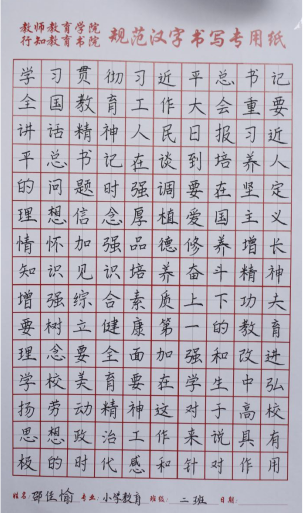 教师教育学院
行知教育书院
规范汉字书写专用纸
学习贯彻习近平总书记
全国教育工作大会重要
讲话精神人民日报习近
平总书记在谈到培养人
的问题时强调要在坚定
理想信念厚植爱国主义
情怀加强品德修养增长
知识见识培养奋斗精神
增强综合素质上下功夫
要树立健康第一的教育
理念要全面加强和改进
学校美育要在学生中弘
扬劳动精神这对于高校
思想政治工作来说具有
极的时代感和针对作用
姓名：邵佳愉 专业：小学教育 班级：二班 日期：